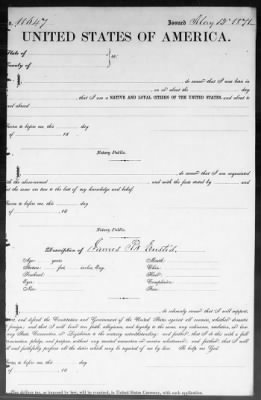 10647 Issued May 13 1871
UNITED STATES OF AMERICA.
State of
County of
do swear that I was born in
on or about the day
that I am a NATIVE AND LOYAL CITIZEN OF THE UNITED STATES, and about to
abroad
Sworn to before me, this day
of 18
Notary Public.
do swear that I am acquainted
with the above-named and with the facts stated by and
that the same are true to the best of my knowledge and belief.
Sworn to before me, this day
of 18
Notary Public.
Description of James
Age: years Mouth:
Stature: feet inches, Eng. Chin:
Forehead: Hair:
Eyes: Complexion:
Nose: Face:
do solemnly swear that I will support,
protect, and defend the Constitution and Government of the United States against all enemies, whether domestic
or foreign; and that I will bear true faith, allegiance, and loyalty to the same, any ordinance, resolution, or law
of any State, Convention, or Legislature to the contrary notwithstanding; and further, that I do this with a full
determination, pledge, and purpose, without any mental reservation or evasion whatsoever; and further, that I will
well and faithfully perform all the duties which may be required of me by law. So help me God.
Sworn to before me, this day
of 18